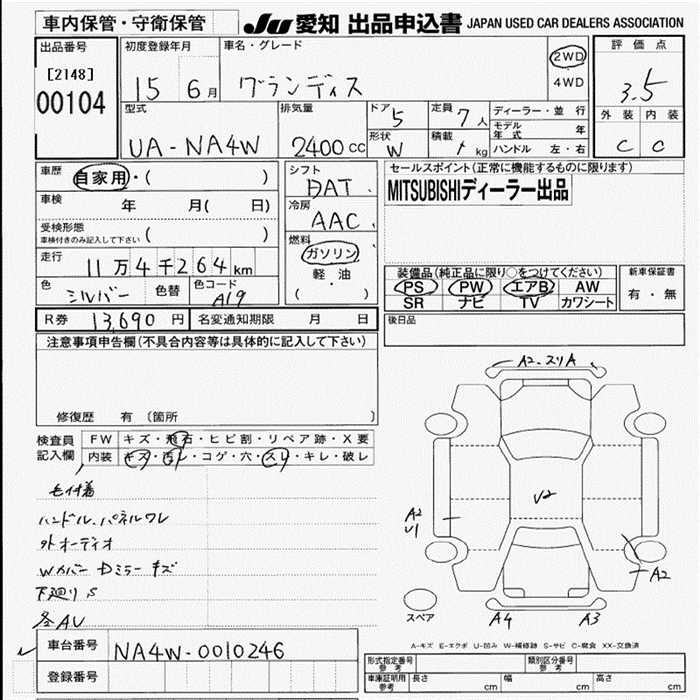 車内保管・守衛保管
JU 愛知 出品申込書 JAPAN USED CAR DEALERS ASSOCIATION
出品番号
[2148]
00104
初度登録年月
15 6月
車名・グレード
グランディス
2WD
4WD
評価点
3.5
外装 内装
C C
型式
UA-NA4W
排気量
2400cc
ドア
5
定員
7人
形状
W
積載
kg
ディーラー・並行
モデル年式 年
ハンドル 左・右
車歴
自家用・( )
車検
年 月( 日)
受検形態
車検付きのみ記入して下さい ( )
走行
11万4千264km
色
シルバー
色替
色コード
A19
シフト
DAT
冷房
AAC
燃料
ガソリン
軽・油
( )
セールスポイント(正常に機能するものに限ります)
MITSUBISHIディーラー出品
装備品(純正品に限り○をつけてください)
PS PW エアB AW
SR ナビ TV カワシート
新車保証書
有・無
後日品
R券 13,690円 名変通知期限 月 日
注意事項申告欄(不具合内容等は具体的に記入して下さい)
修復歴 有 〔箇所 〕
検査員記入欄
FW キズ・飛石・ヒビ割・リペア跡・X要
内装 キズ・汚レ・コゲ・穴・スレ・キレ・破レ
毛付着
ハンドル、パネルワレ
外オーディオ
Wカバー Dミラーキズ
下廻りS
各AU
A2・スリA
V2
A2
U1
A2
A4 A3
スペア
A-キズ E-エクボ U-凹み W-補修跡 S-サビ C-腐食 XX-交換済
車台番号
NA4W-0010246
登録番号
形式指定番号 参考
類別区分番号 参考
車庫証明用 参考
長さ cm 幅 cm 高さ cm